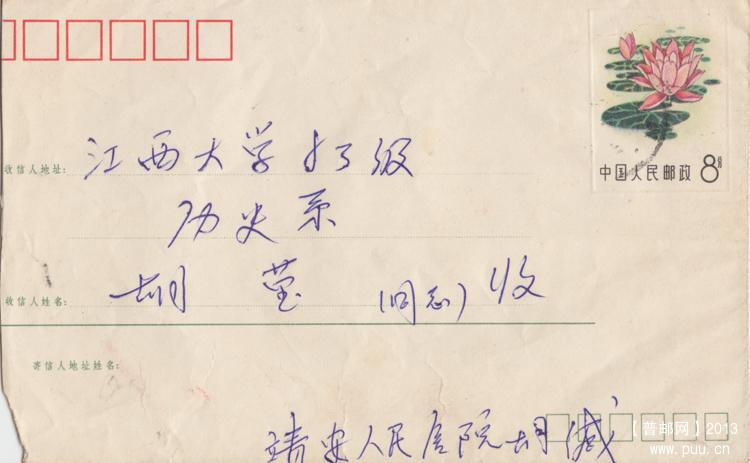 中国人民邮政 8分
收信人地址: 江西大学83级
历史系
收信人姓名: 胡莹 (同志) 收
寄信人地址姓名:
靖安人民医院胡
【普邮网】2013
www.puu.cn